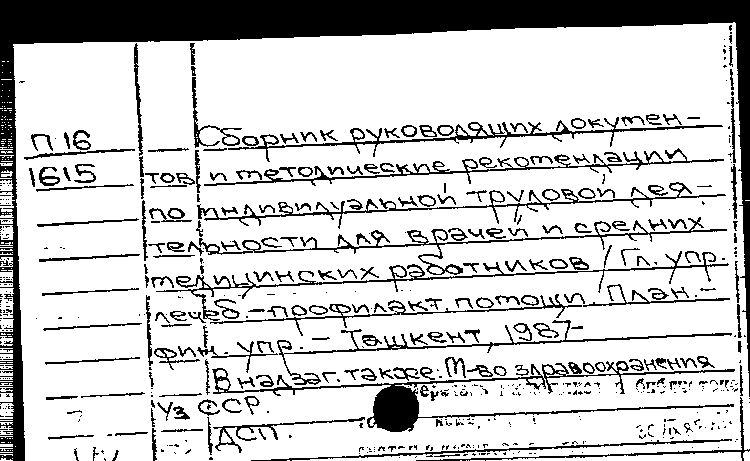 П 16
1615
Сборник руководящих докумен-
тов и методические рекомендации
по индивидуальной трудовой дея-
тельности для врачей и средних
медицинских работников / Гл. упр.
лечеб.-профилакт. помощи. План.-
фин. упр. - Ташкент, 1987
В надзаг. также: М-во здравоохранения
Уз ССР.
ДСП.